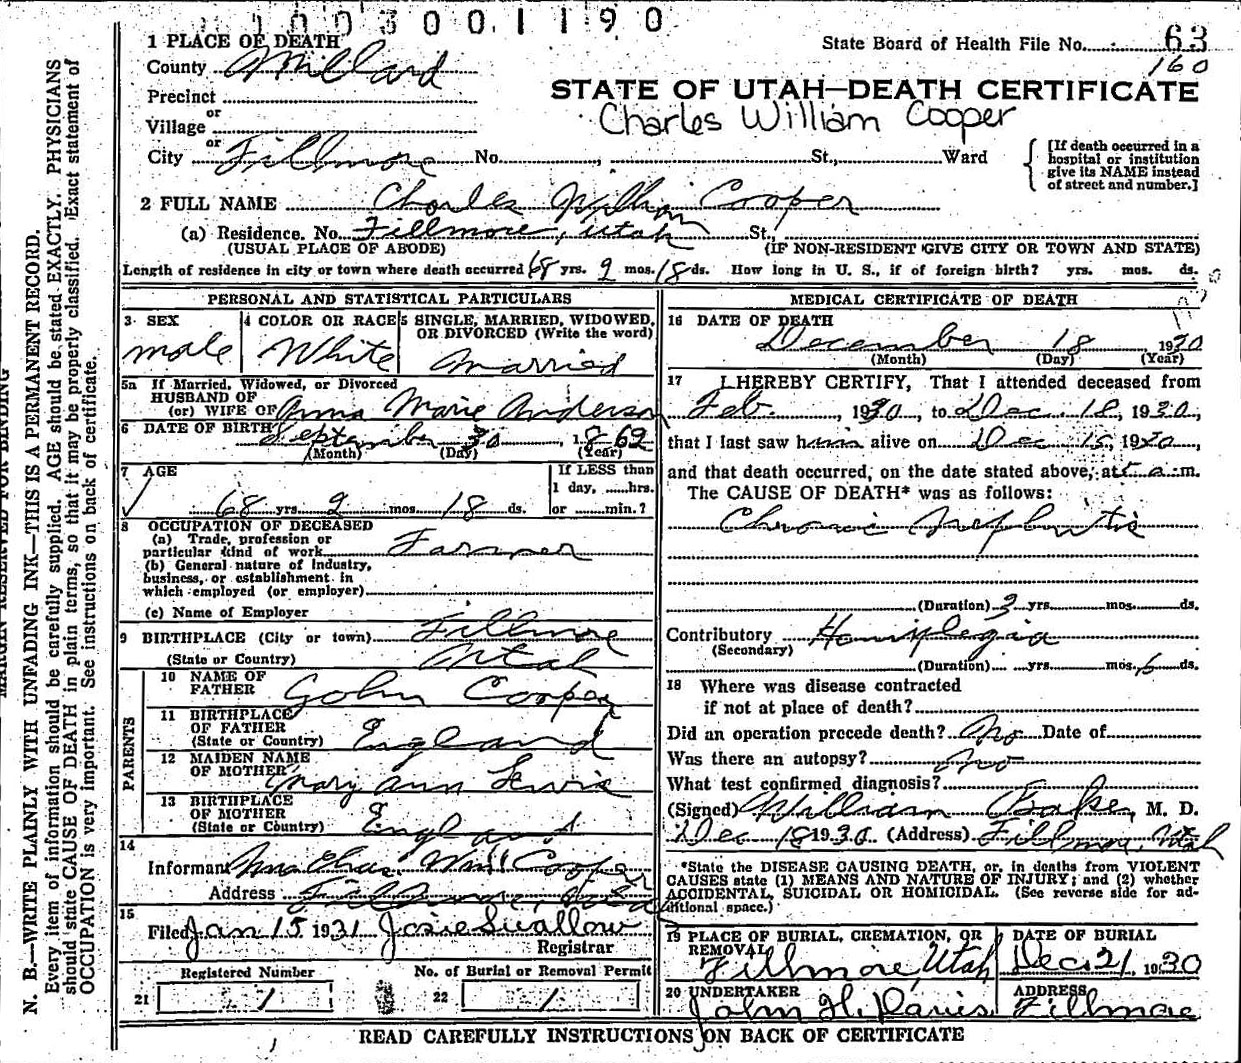 1003001190
1 PLACE OF DEATH
County Millard
State Board of Health File No. 63
160
Precinct
STATE OF UTAH—DEATH CERTIFICATE
or
Village
Charles William Cooper
or
City Fillmore No. , St., Ward
[If death occurred in a
hospital or institution
give its NAME instead
of street and number.]
2 FULL NAME Charles William Cooper
(a) Residence. No. Fillmore, Utah St.,
(USUAL PLACE OF ABODE) (IF NON-RESIDENT GIVE CITY OR TOWN AND STATE)
Length of residence in city or town where death occurred 68 yrs. 2 mos. 18 ds. How long in U. S., if of foreign birth? yrs. mos. ds.
PERSONAL AND STATISTICAL PARTICULARS
3 SEX
male
4 COLOR OR RACE
White
5 SINGLE, MARRIED, WIDOWED,
OR DIVORCED (Write the word)
Married
5a If Married, Widowed, or Divorced
HUSBAND OF
(or) WIFE OF Anna Marie Anderson
6 DATE OF BIRTH September 30, 1862
(Month) (Day) (Year)
7 AGE
68 yrs. 2 mos. 18 ds.
If LESS than
1 day, ......hrs.
or ......min.?
8 OCCUPATION OF DECEASED
(a) Trade, profession or
particular kind of work Farmer
(b) General nature of Industry,
business, or establishment in
which employed (or employer)
(c) Name of Employer
9 BIRTHPLACE (City or town) Fillmore
(State or Country) Utah
PARENTS
10 NAME OF
FATHER John Cooper
11 BIRTHPLACE
OF FATHER
(State or Country) England
12 MAIDEN NAME
OF MOTHER Mary Ann Lewis
13 BIRTHPLACE
OF MOTHER
(State or Country) England
14
Informant Mrs Chas. Wm Cooper
Address Fillmore, Utah
15
Filed Jan 15 1931 Josie Swallow
Registrar
Registered Number
21 1
No. of Burial or Removal Permit
22 1
MEDICAL CERTIFICATE OF DEATH
16 DATE OF DEATH
December 18 1930
(Month) (Day) (Year)
17 I HEREBY CERTIFY, That I attended deceased from
Feb. , 1930, to Dec. 18, 1930,
that I last saw him alive on Dec 15, 1930,
and that death occurred, on the date stated above, at a.m.
The CAUSE OF DEATH* was as follows:
Chronic Nephritis
(Duration) yrs. mos. ds.
Contributory Hemiplegia
(Secondary)
(Duration) yrs. mos. 6 ds.
18 Where was disease contracted
if not at place of death?
Did an operation precede death? No Date of
Was there an autopsy? No
What test confirmed diagnosis?
(Signed) William Baker, M. D.
Dec 18 1930 (Address) Fillmore, Utah
*State the DISEASE CAUSING DEATH, or, in deaths from VIOLENT
CAUSES state (1) MEANS AND NATURE OF INJURY; and (2) whether
ACCIDENTAL, SUICIDAL OR HOMICIDAL. (See reverse side for ad-
ditional space.)
19 PLACE OF BURIAL, CREMATION, OR
REMOVAL
Fillmore, Utah
DATE OF BURIAL
Dec. 21, 1930
20 UNDERTAKER
John H. Davis
ADDRESS
Fillmore
READ CAREFULLY INSTRUCTIONS ON BACK OF CERTIFICATE
MARGIN RESERVED FOR BINDING
N. B.—WRITE PLAINLY WITH UNFADING INK—THIS IS A PERMANENT RECORD.
Every item of information should be carefully supplied. AGE should be stated EXACTLY. PHYSICIANS
should state CAUSE OF DEATH in plain terms, so that it may be properly classified. Exact statement of
OCCUPATION is very important. See instructions on back of certificate.